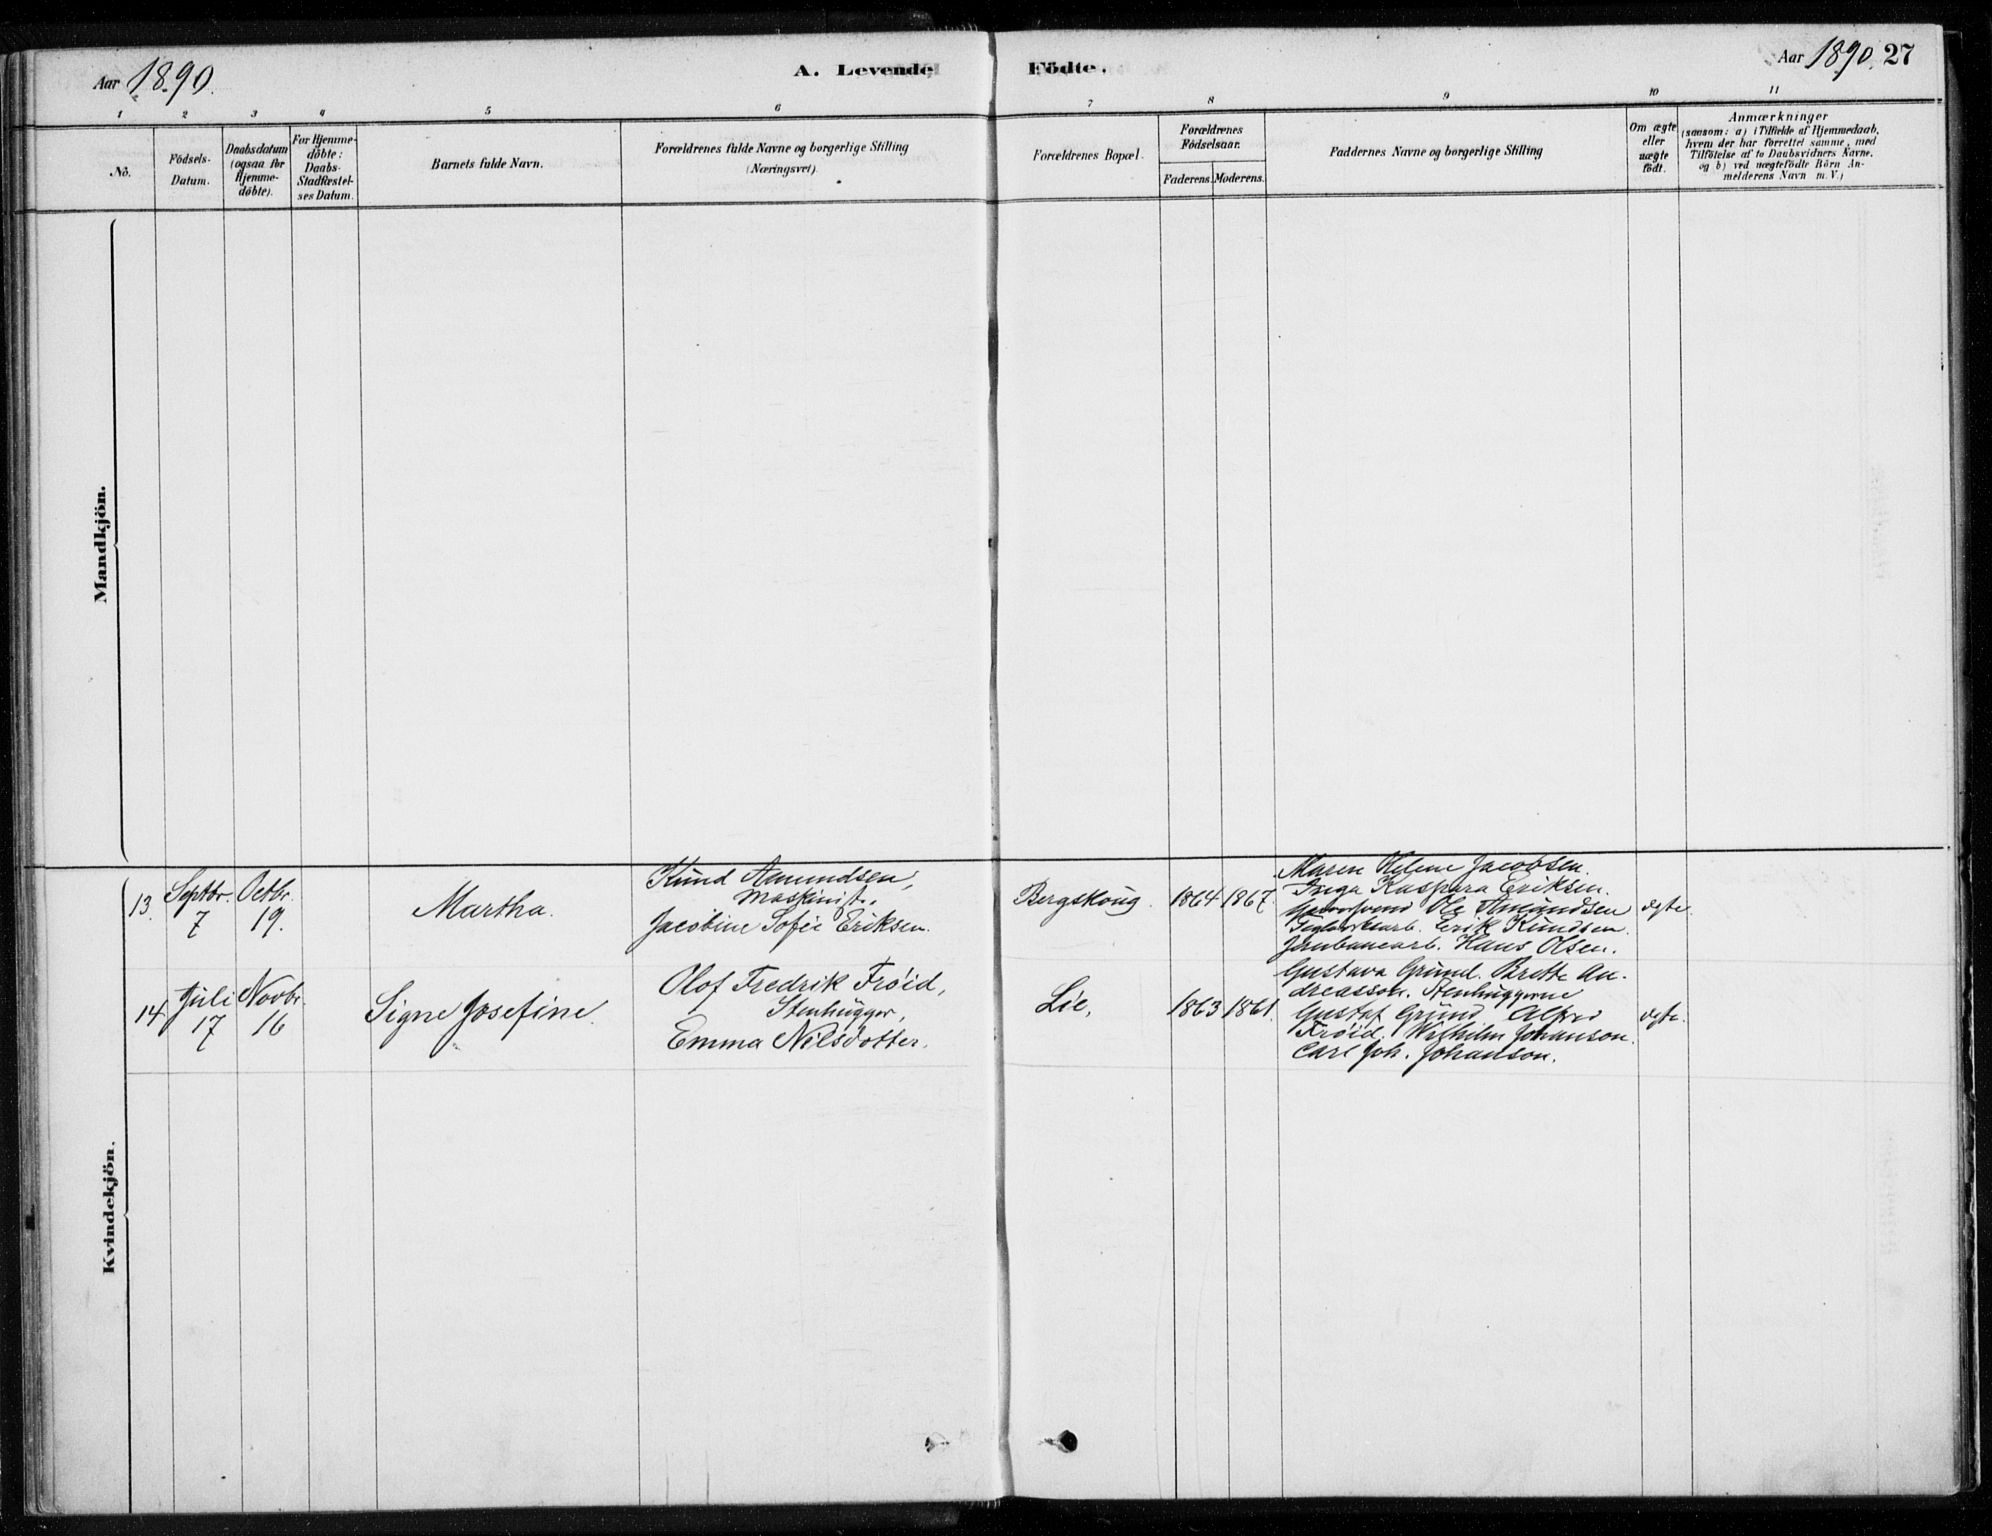 Aar 1890.
A. Levende
Födte.
Aar 1890. 27
1 2 3 4 5 6 7 8 9 10 11
No.
Födsels-
Datum.
Daabsdatum
(ogsaa for
Hjemme-
döbte).
For Hjemme-
döbte:
Daabs-
Stadfæstel-
ses Datum.
Barnets fulde Navn.
Forældrenes fulde Navne og borgerlige Stilling
(Næringsvei)
Forældrenes Bopæl.
Forældrenes
Födselsaar.
Faderens. Moderens.
Faddernes Navne og borgerlige Stilling
Om ægte
eller
uægte
födt.
Anmærkninger
(saasom: a) i Tilfælde af Hjemmedaab,
hvem der har forrettet samme, med
Tilföielse af to Daabsvidners Navne,
og b) ved uægtefödte Börn An-
melderens Navn m. V.)
Mandkjön.
Kvindekjön.
13.
Septbr.
7
Octbr.
19.
Martha.
Knud Amundsen,
Maskinist.
Jacobine Sofie Eriksen.
Bergskoug.
1864 1867.
Maren Helene Jacobsen.
Inga Kaspara Eriksen.
Ole Amundsen
Teglværksarb. Erik Knudsen.
Jernbanearb. Hans Olsen.
ægte.
14.
Juli
17
Novbr.
16
Signe Josefine.
Olof Fredrik Fröid,
Stenhugger,
Emma Nilsdotter.
Lie,
1863 1861.
Gustava Grund. Brette An-
dreasson. Stenhuggerne
Gustaf Grund, Alfred
Fröid. Wilhilm Johanson.
Carl Joh. Johanson.
ægte.